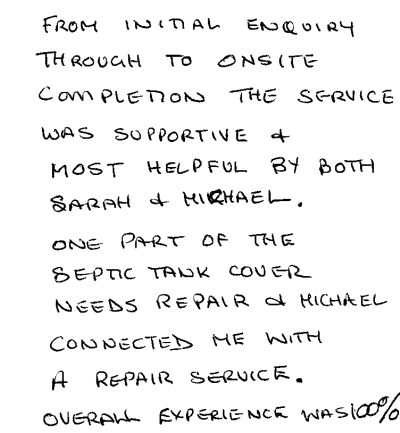 FROM INITIAL ENQUIRY
THROUGH TO ONSITE
COMPLETION THE SERVICE
WAS SUPPORTIVE &
MOST HELPFUL BY BOTH
SARAH & MICHAEL.
ONE PART OF THE
SEPTIC TANK COVER
NEEDS REPAIR & MICHAEL
CONNECTED ME WITH
A REPAIR SERVICE.
OVERALL EXPERIENCE WAS 100%